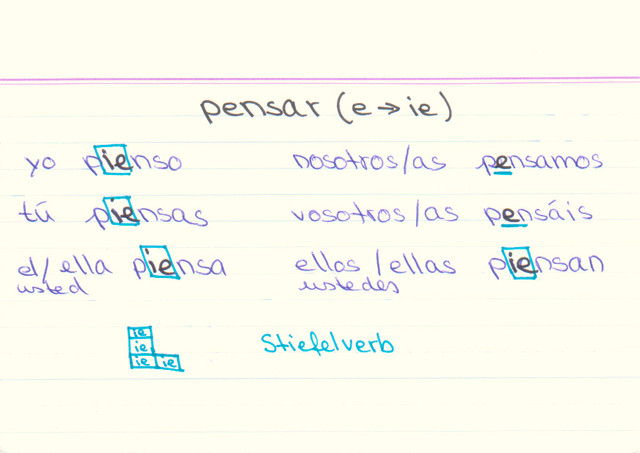 pensar (e → ie)
yo pienso nosotros/as pensamos
tú piensas vosotros/as pensáis
el/ella piensa ellos/ellas piensan
usted ustedes
ie
ie
ie ie Stiefelverb